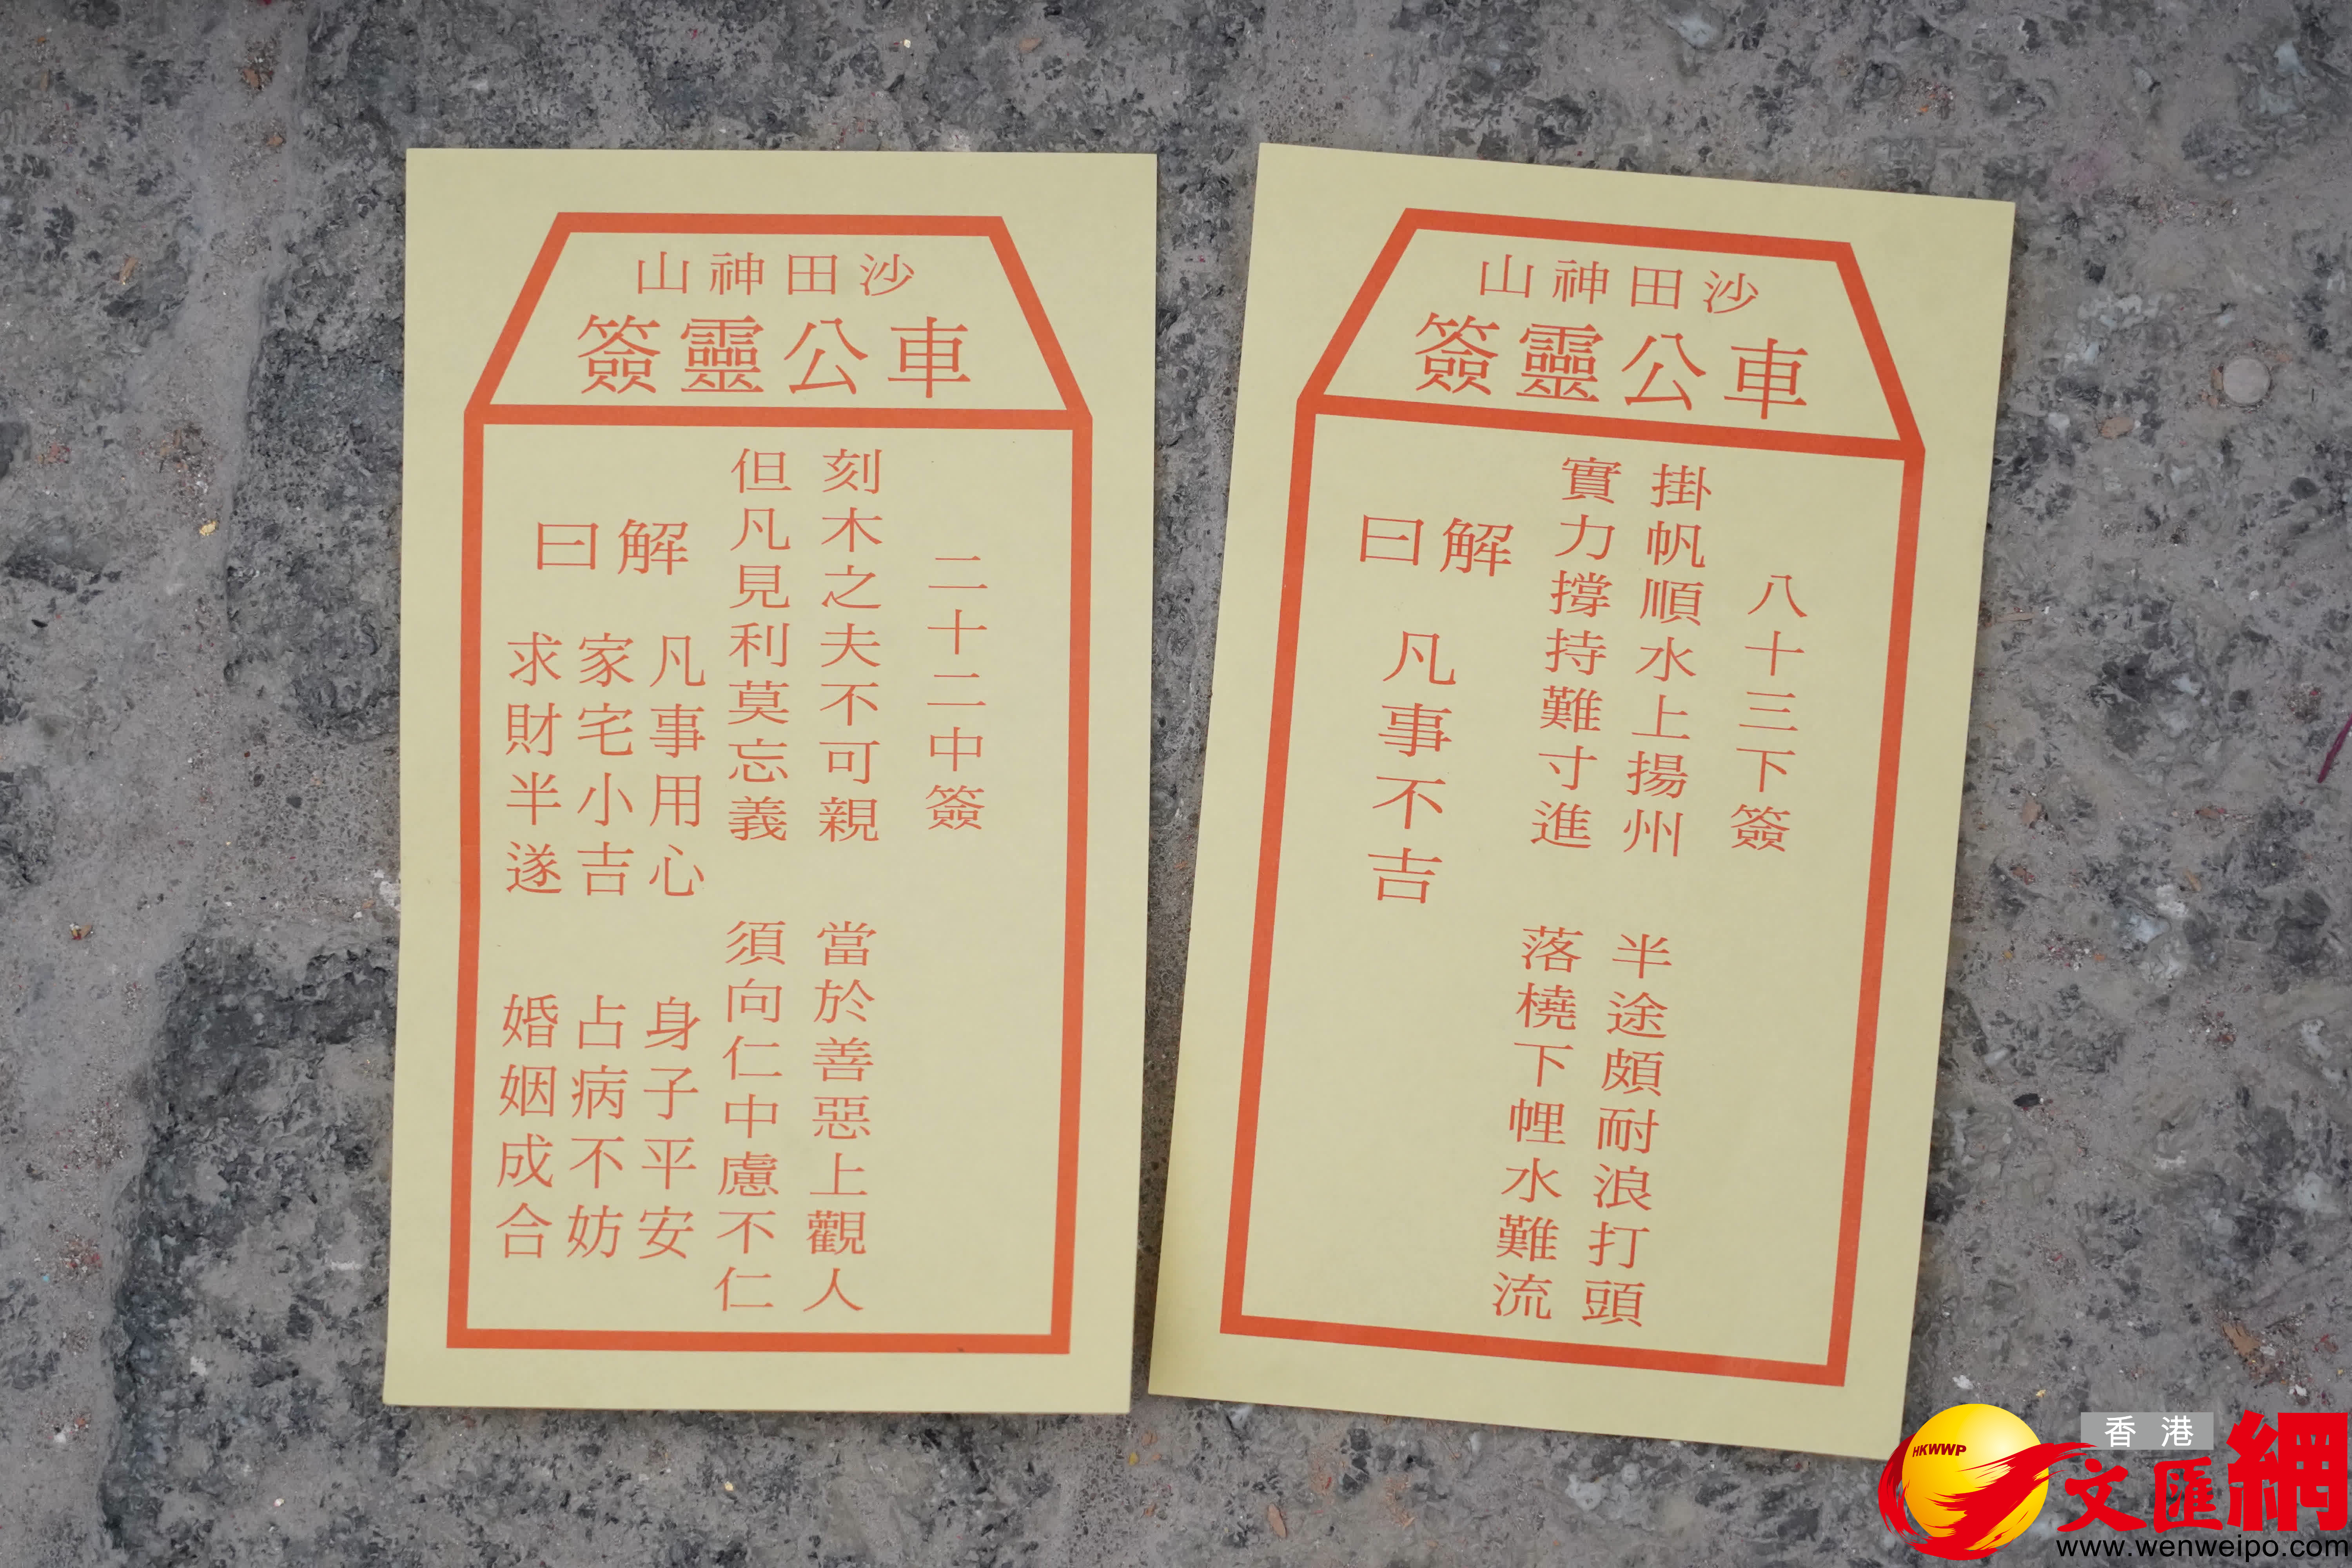 沙田神山
車公靈簽
二十二中簽
刻木之夫不可親　當於善惡上觀人
但凡見利莫忘義　須向仁中慮不仁
解曰
凡事用心　身子平安
家宅小吉　占病不妨
求財半遂　婚姻成合
沙田神山
車公靈簽
八十三下簽
掛帆順水上揚州　半途頗耐浪打頭
實力撐持難寸進　落橈下悝水難流
解曰
凡事不吉
HKWWP
香港
文匯網
www.wenweipo.com